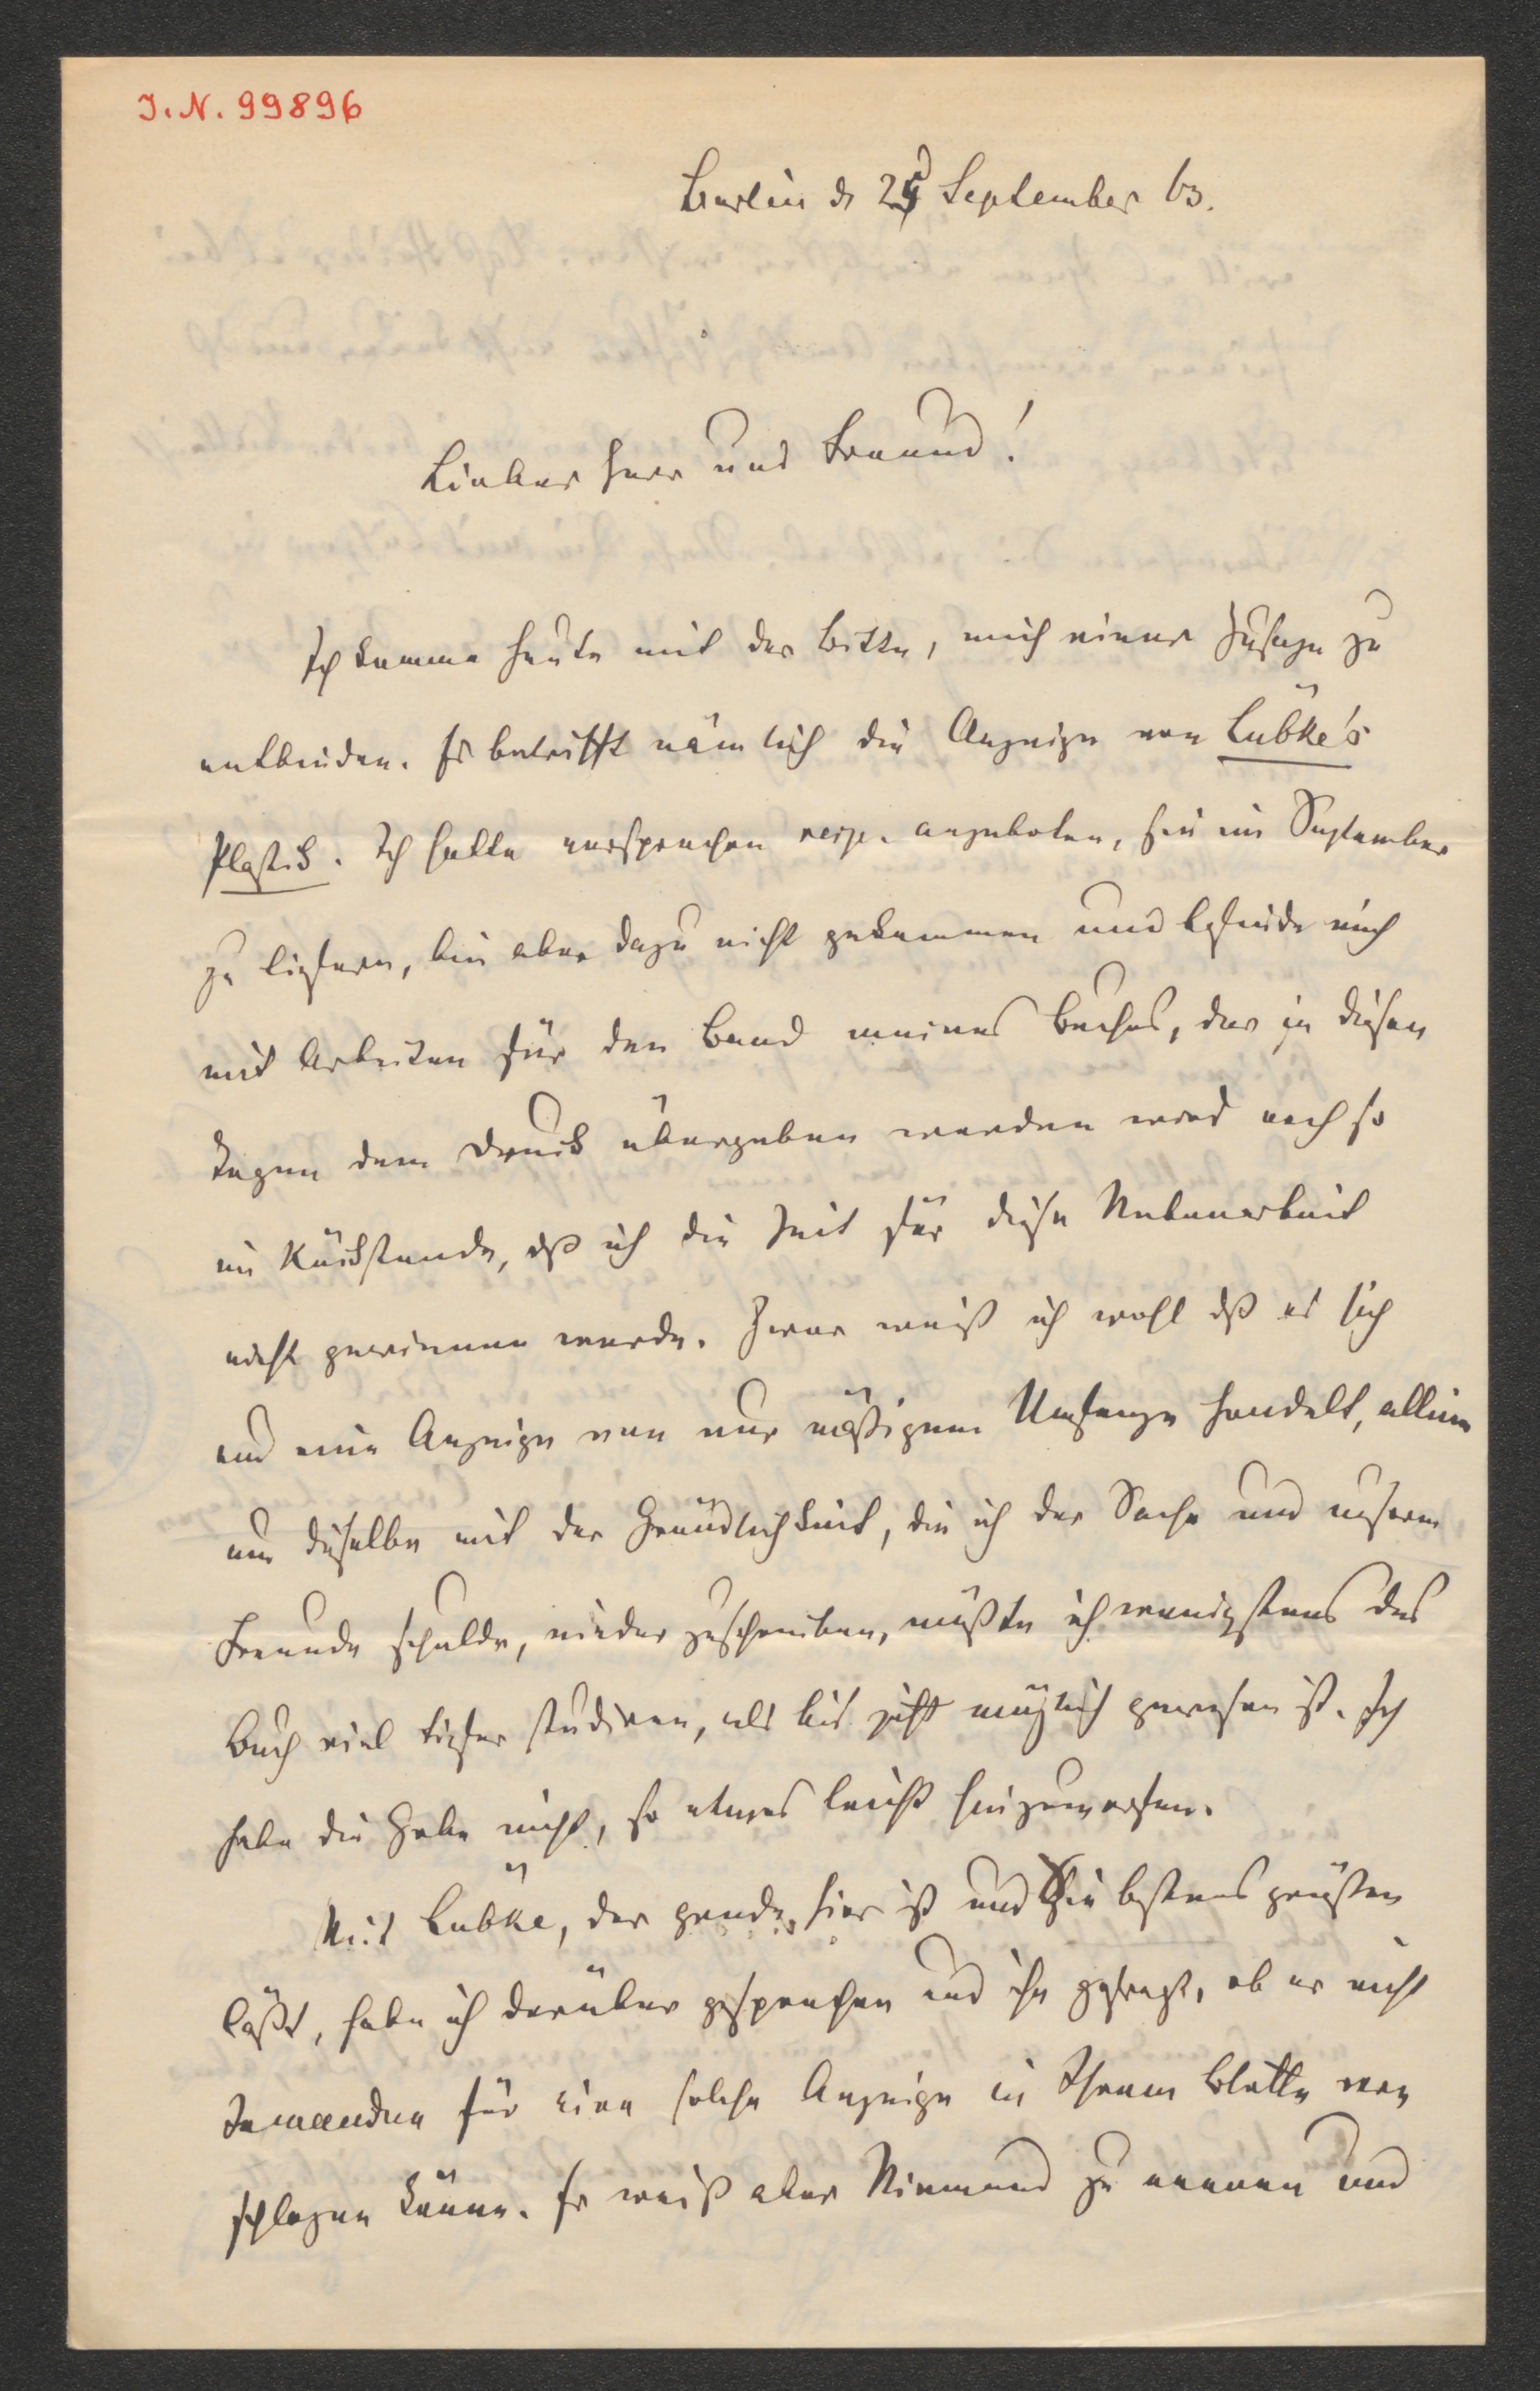 J. N. 99896
Berlin d 25 September 63.
Lieber Herr und Freund!
Ich komme heute mit der Bitte, mich einer Zusage zu
entbinden. Es betrifft nämlich die Anzeige von Lübke's
Plastik. Ich hatte versprochen resp. angeboten, sie im September
zu liefern, bin aber dazu nicht gekommen und befinde mich
mit Arbeiten für den Band meines Buches, der in diesen
Tagen dem Druck übergeben werden wird noch so
im Rückstande, dß ich die Zeit für diese Nebenarbeit
nicht gewinnen werde. Zwar weiß ich wohl dß es sich
um eine Anzeige von nur mäßigem Umfange handelt, allein
um dieselbe mit der Gründlichkeit, die ich der Sache und unserm
Freunde schulde, niederzuschreiben, müßte ich wenigstens das
Buch viel tiefer studiren, als bis jetzt möglich gewesen ist. Ich
habe die Gabe nicht, so etwas leicht hinzuwerfen.
Mit Lübke, der grade hier ist und Sie bestens grüßen
läßt, habe ich darüber gesprochen und ihn gefragt, ob er nicht
Jemanden für eine solche Anzeige in Ihrem Blatte vor
schlagen könne. Er weiß aber Niemand zu nennen und